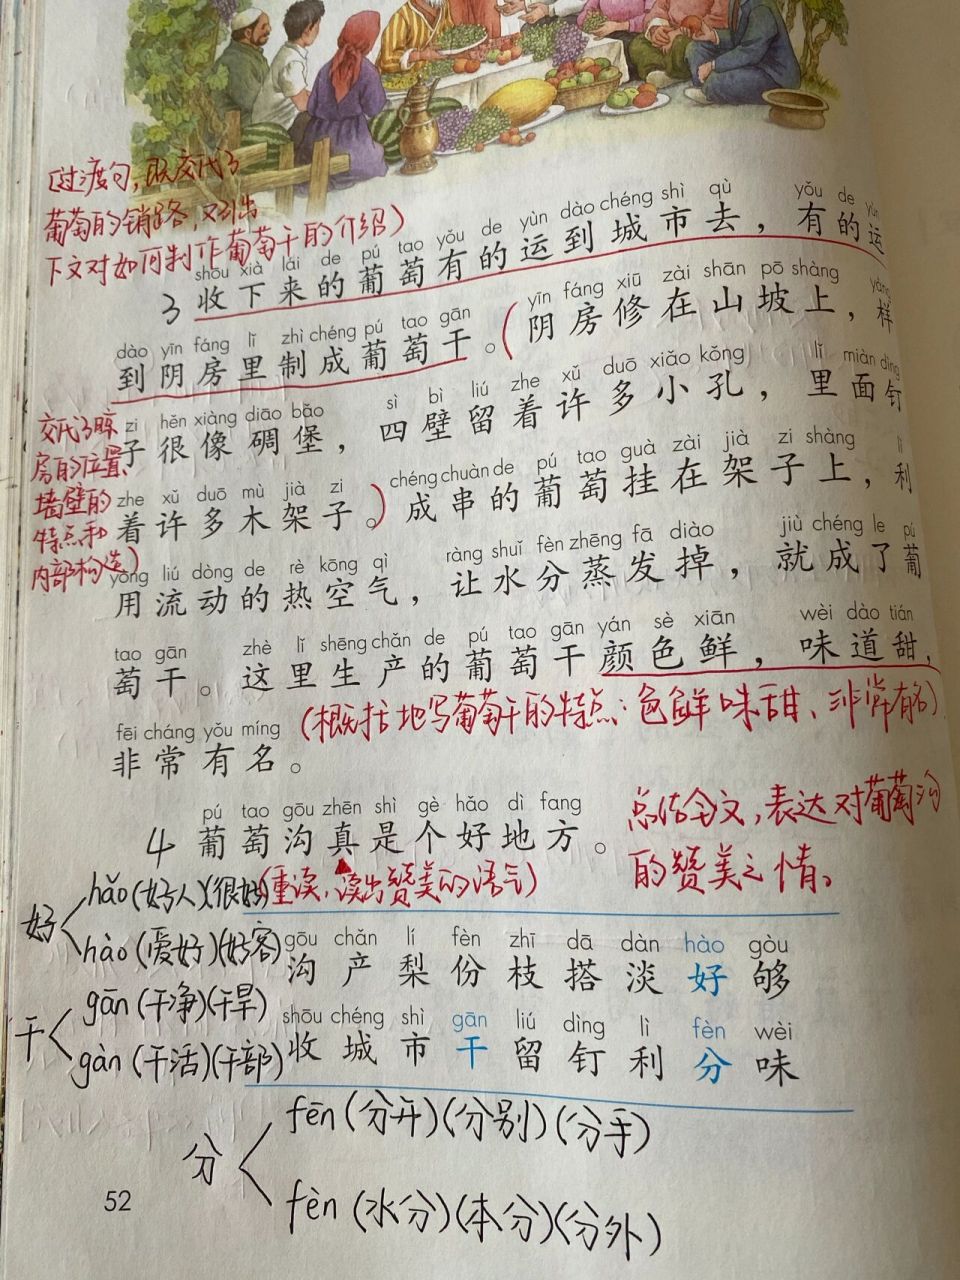 (过渡句,既交代了
葡萄的销路,又引出
下文对如何制作葡萄干的介绍)
shōu xià lái de pú tao yǒu de yùn dào chéng shì qù yǒu de yùn
3 收下来的葡萄有的运到城市去，有的运
dào yīn fáng lǐ zhì chéng pú tao gān yīn fáng xiū zài shān pō shàng yàng
到阴房里制成葡萄干。(阴房修在山坡上，样
交代了晾
房的位置、
墙壁的
特点和
内部构造
zi hěn xiàng diāo bǎo sì bì liú zhe xǔ duō xiǎo kǒng lǐ miàn dìng
子很像碉堡，四壁留着许多小孔，里面钉
zhe xǔ duō mù jià zi chéng chuàn de pú tao guà zài jià zi shàng lì
着许多木架子。)成串的葡萄挂在架子上，利
yòng liú dòng de rè kōng qì ràng shuǐ fèn zhēng fā diào jiù chéng le pú
用流动的热空气，让水分蒸发掉，就成了葡
tao gān zhè lǐ shēng chǎn de pú tao gān yán sè xiān wèi dào tián
萄干。这里生产的葡萄干颜色鲜，味道甜，
(概括地写葡萄干的特点:色鲜味甜、非常有名)
fēi cháng yǒu míng
非常有名。
pú tao gōu zhēn shì gè hǎo dì fang
4 葡萄沟真是个好地方。
总结全文,表达对葡萄沟
的赞美之情。
(重读,读出赞美的语气)
好
hǎo(好人)(很好)
hào(爱好)(好客)
干
gān(干净)(干旱)
gàn(干活)(干部)
gōu chǎn lí fèn zhī dā dàn hào gòu
沟 产 梨 份 枝 搭 淡 好 够
shōu chéng shì gān liú dìng lì fèn wèi
收 城 市 干 留 钉 利 分 味
分
fēn(分开)(分别)(分手)
fèn(水分)(本分)(分外)
52